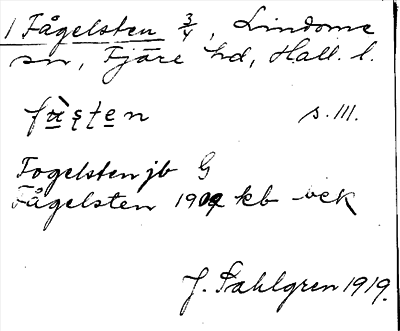 1 Fågelsten 3/4, Lindome
sn, Fjäre hd, Hall. l.
s. III.
Fogelsten jb G
Fågelsten 1902 kb ock
J. Sahlgren 1919.